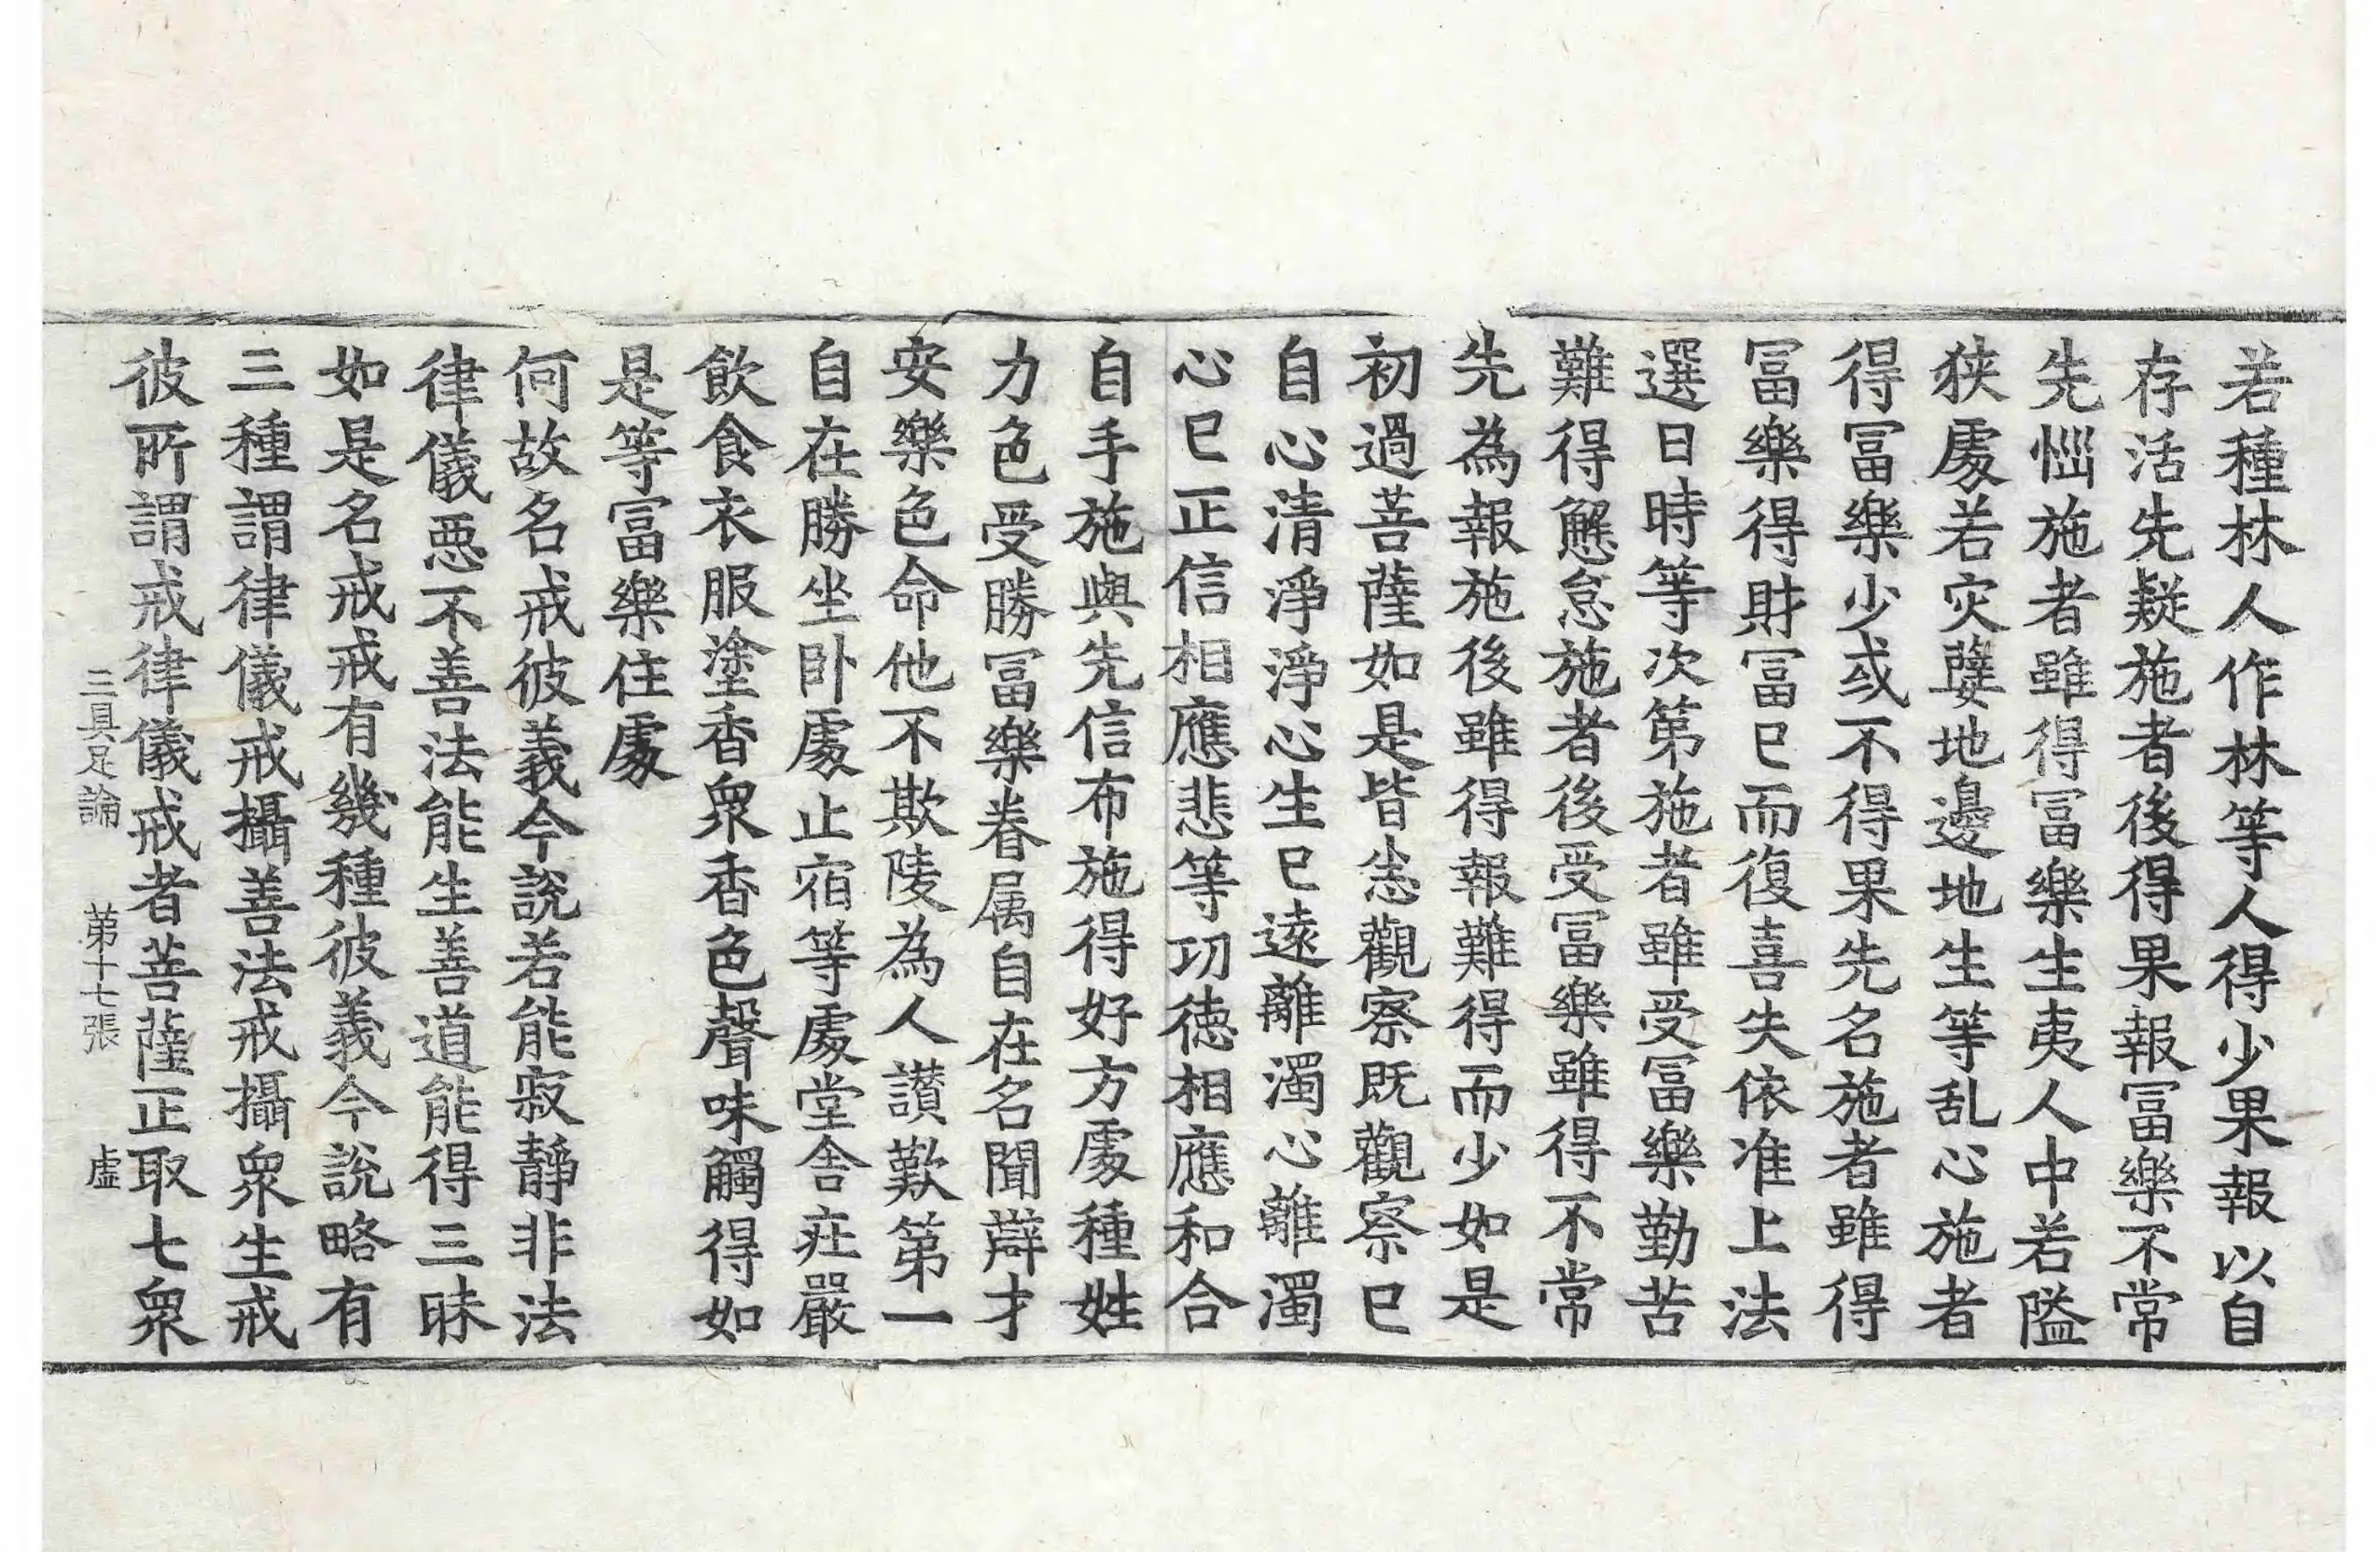 若種林人作林等人得少果報以自
存活先疑施者後得果報冨樂不常
先惱施者雖得冨樂生夷人中若隘
狹處若灾孽地邊地生等乱心施者
得冨樂少或不得果先名施者雖得
冨樂得財冨已而復喜失依准上法
選日時等次第施者雖受冨樂勤苦
難得懈怠施者後受冨樂雖得不常
先為報施後雖得報難得而少如是
初過菩薩如是皆悉觀察既觀察已
自心清淨淨心生已遠離濁心離濁
心已正信相應悲等功徳相應和合
自手施與先信布施得好方處種姓
力色受勝冨樂眷属自在名聞辯才
安樂色命他不欺陵為人讃歎第一
自在勝坐卧處止宿等處堂舎莊嚴
飲食衣服塗香衆香色聲味觸得如
是等冨樂住處
何故名戒彼義今說若能寂靜非法
律儀悪不善法能生善道能得三昧
如是名戒戒有幾種彼義今說略有
三種謂律儀戒攝善法戒攝衆生戒
彼所謂戒律儀戒者菩薩正取七衆
三具足論 第十七張 虛